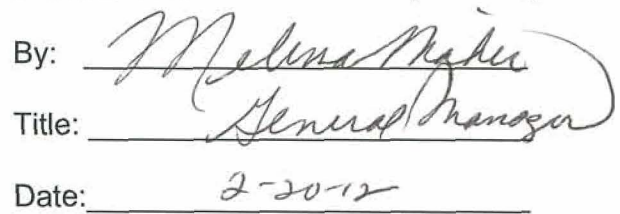 By: Melina Maher
Title: General Manager
Date: 2-20-12